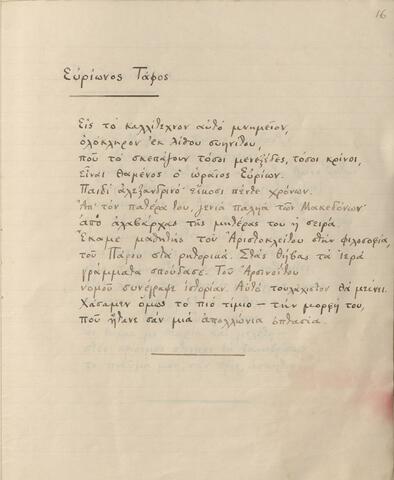 16
Εὐρίωνος Τάφος
Εἰς τὸ καλλίτεχνον αὐτὸ μνημεῖον,
ὁλόκληρον ἐκ λίθου συηνίτου,
ποὺ τὸ σκεπάζουν τόσοι μενεξέδες, τόσοι κρίνοι,
εἶναι θαμένος ὁ ὡραῖος Εὐρίων.
Παιδὶ ἀλεξανδρινό· εἴκοσι πέντε χρόνων.
Ἀπ' τὸν πατέρα του, γενιὰ παληὰ τῶν Μακεδόνων·
ἀπὸ ἀλαβάρχας τῆς μητέρας του ἡ σειρά.
Ἔκαμε μαθητὴς τοῦ Ἀριστοκλείτου στὴν φιλοσοφία,
τοῦ Πάρου στὰ ρητορικά. Στὰς Θήβας τὰ ἱερὰ
γράμματα σπούδασε. Τοῦ Ἀρσινοΐτου
νομοῦ συνέγραψε ἱστορίαν. Αὐτὸ τουλάχιστον θὰ μείνει.
Χάσαμεν ὅμως τὸ πιὸ τίμιο — τὴν μορφή του,
ποὺ ἤτανε σὰν μιὰ ἀπολλώνια ὀπτασία.